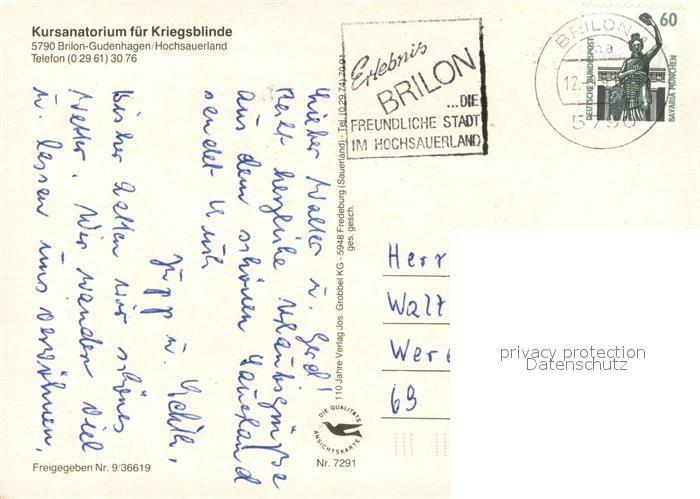 Kursanatorium für Kriegsblinde
5790 Brilon-Gudenhagen/Hochsauerland
Telefon (0 29 61) 30 76
Erlebnis
BRILON
...DIE
FREUNDLICHE STADT
IM HOCHSAUERLAND
BRILON 1
na
12.
5790
60
DEUTSCHE BUNDESPOST
BAVARIA MÜNCHEN
Lieber Walter u. Gerd!
Recht herzliche Urlaubsgrüße
aus dem schönen Sauerland
sendet Euch
Jupp u.
Bisher hatten wir schönes
Wetter. Wir wandern viel
u. lassen uns verwöhnen.
110 Jahre Verlag Jos. Grobbel KG - 5948 Fredeburg (Sauerland) - Tel. (0 29 74) 70 91
ges. gesch.
Herr
Walt
Wer
69
privacy protection
Datenschutz
DIE QUALITÄTS
ANSICHTSKARTE
Freigegeben Nr. 9/36619
Nr. 7291